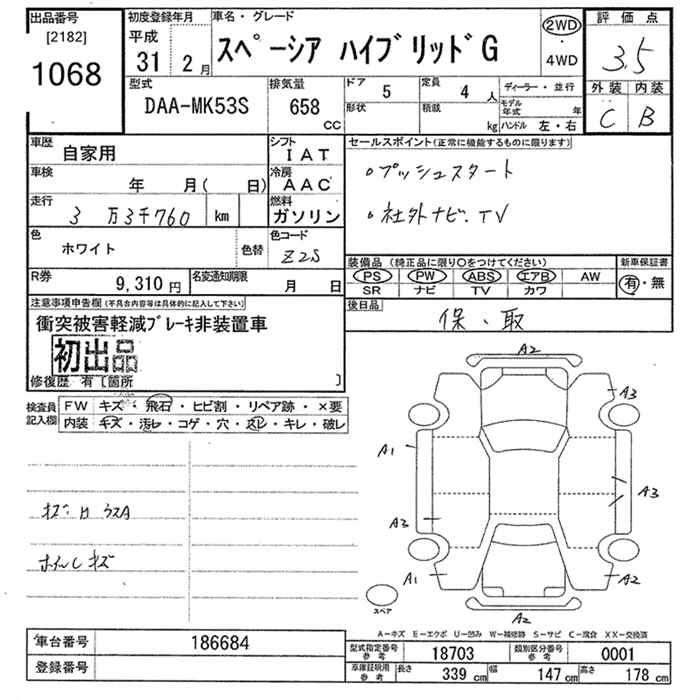 出品番号
[2182]
1068
初度登録年月
平成
31 2 月
車名・グレード
スペーシア ハイブリッドG
2WD
・
4WD
評価点
3.5
外装 内装
C B
型式
DAA-MK53S
排気量
658
CC
ドア 5
定員 4 人
形状
積載 kg
ディーラー・並行
モデル年式 年
ハンドル 左・右
車歴
自家用
シフト
IAT
車検
年 月( 日)
冷房
AAC
走行
3 万 3千760 km
燃料
ガソリン
色
ホワイト
色替
色コード
Z2S
R券
9,310 円
名変通知期限
月 日
セールスポイント(正常に機能するものに限ります)
・プッシュスタート
・社外ナビ.TV
装備品 (純正品に限り○をつけてください)
PS PW ABS エアB AW
SR ナビ TV カワ
新車保証書
有・無
後日品
保、取
注意事項申告欄 (不具合内容等は具体的に記入して下さい)
衝突被害軽減ブレーキ非装置車
初出品
修復歴 有〔箇所 〕
検査員
記入欄
FW キズ・飛石・ヒビ割・リペア跡・×要
内装 キズ・汚レ・コゲ・穴・スレ・キレ・破レ
ホイルキズ
A2
A3
A1
A3
A3
A1
A2
A2
スペア
A−キズ E−エクボ U−凹み W−補修跡 S−サビ C−腐食 XX−交換済
車台番号
186684
登録番号
型式指定番号
参考
18703
類別区分番号
参考
0001
車庫証明用
参考
長さ 339 cm 幅 147 cm 高さ 178 cm